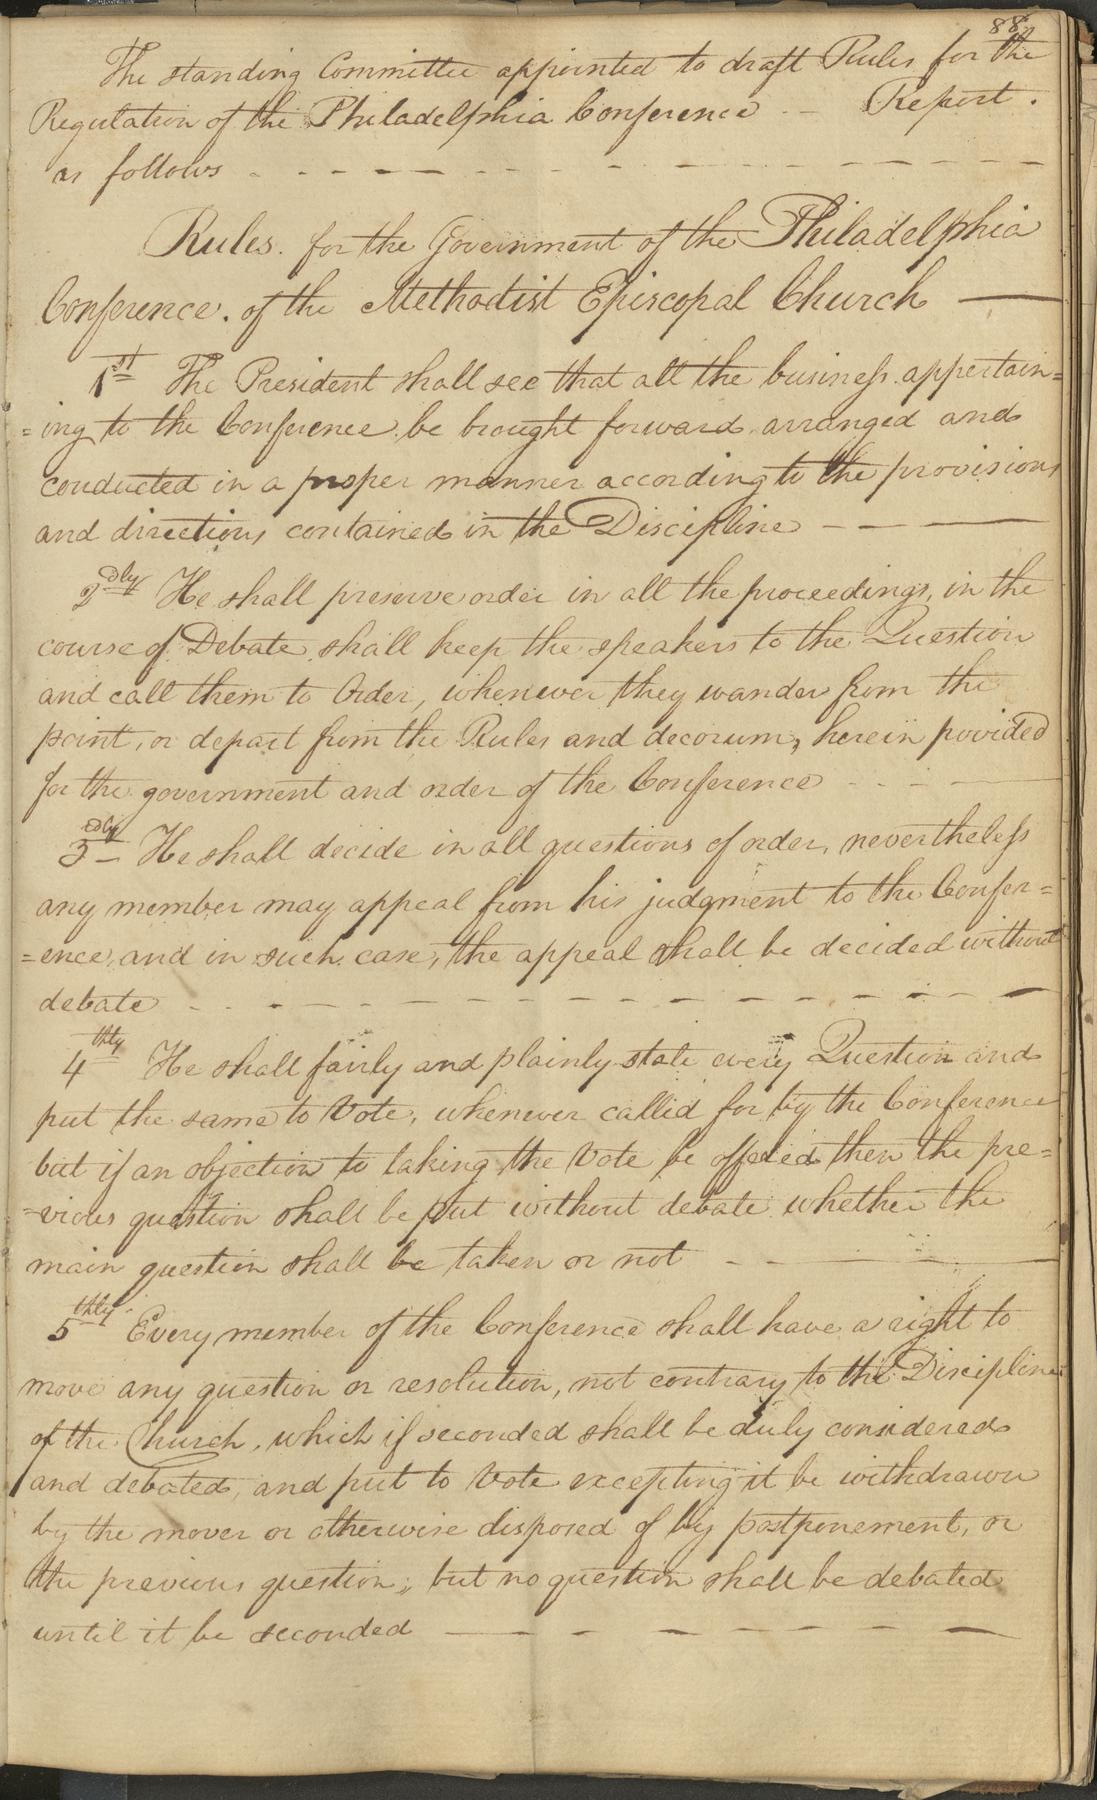 88
The standing Committee appointed to draft Rules for the
Regulation of the Philadelphia Conference - - Report.
as follows - - - - - - - - - - - - - -
Rules. for the Government of the Philadelphia
Conference. of the Methodist Episcopal Church —
1st The President shall see that all the business appertain=
=ing to the Conference be brought forward arranged and
conducted in a proper manner according to the provisions
and directions contained in the Discipline - - —
2dly He shall preserve order in all the proceedings, in the
course of Debate shall keep the speakers to the Question
and call them to Order, whenever they wander from the
point, or depart from the Rules and decorum, herein povided
for the government and order of the Conference - - - —
3dly He shall decide in all questions of order, nevertheless
any member may appeal from his judgment to the Confer=
=ence, and in such case, the appeal shall be decided without
debate - - - - - - - - - - - - - - -
4thly He shall fairly and plainly state every Question and
put the same to Vote, whenever called for by the Conference
but if an objection to taking the Vote be offered then the pre=
=vious question shall be put without debate whether the
main question shall be taken or not - - —
5thly Every member of the Conference shall have a right to
move any question or resolution, not contrary to the Discipline
of the Church, which if seconded shall be duly considered
and debated, and put to Vote excepting it be withdrawn
by the mover or otherwise disposed of by postponement, or
the previous question; but no question shall be debated
until it be seconded — - - - - - - —